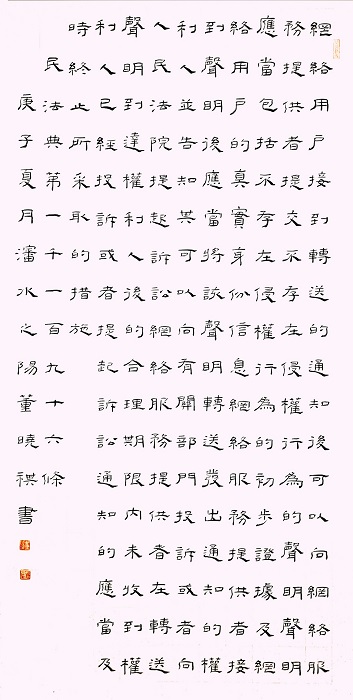 網絡用戶接到轉送的通知後可以向網絡服
務提供者提交不存在侵權行為的聲明聲明
應當包括不存在侵權行為的初步證據及網
絡用戶的真實身份信息網絡服務提供者接
到聲明後應當將該聲明轉送發出通知的權
利人並告知其可以向有關部門投訴或者向
人民法院提起訴訟網絡服務提供者在轉送
聲明到達權利人後的合理期限內未收到權
利人已經投訴或者提起訴訟通知的應當及
時終止所采取的措施
民法典第一千一百九十六條
庚子夏月瀋水之陽董曉祺書